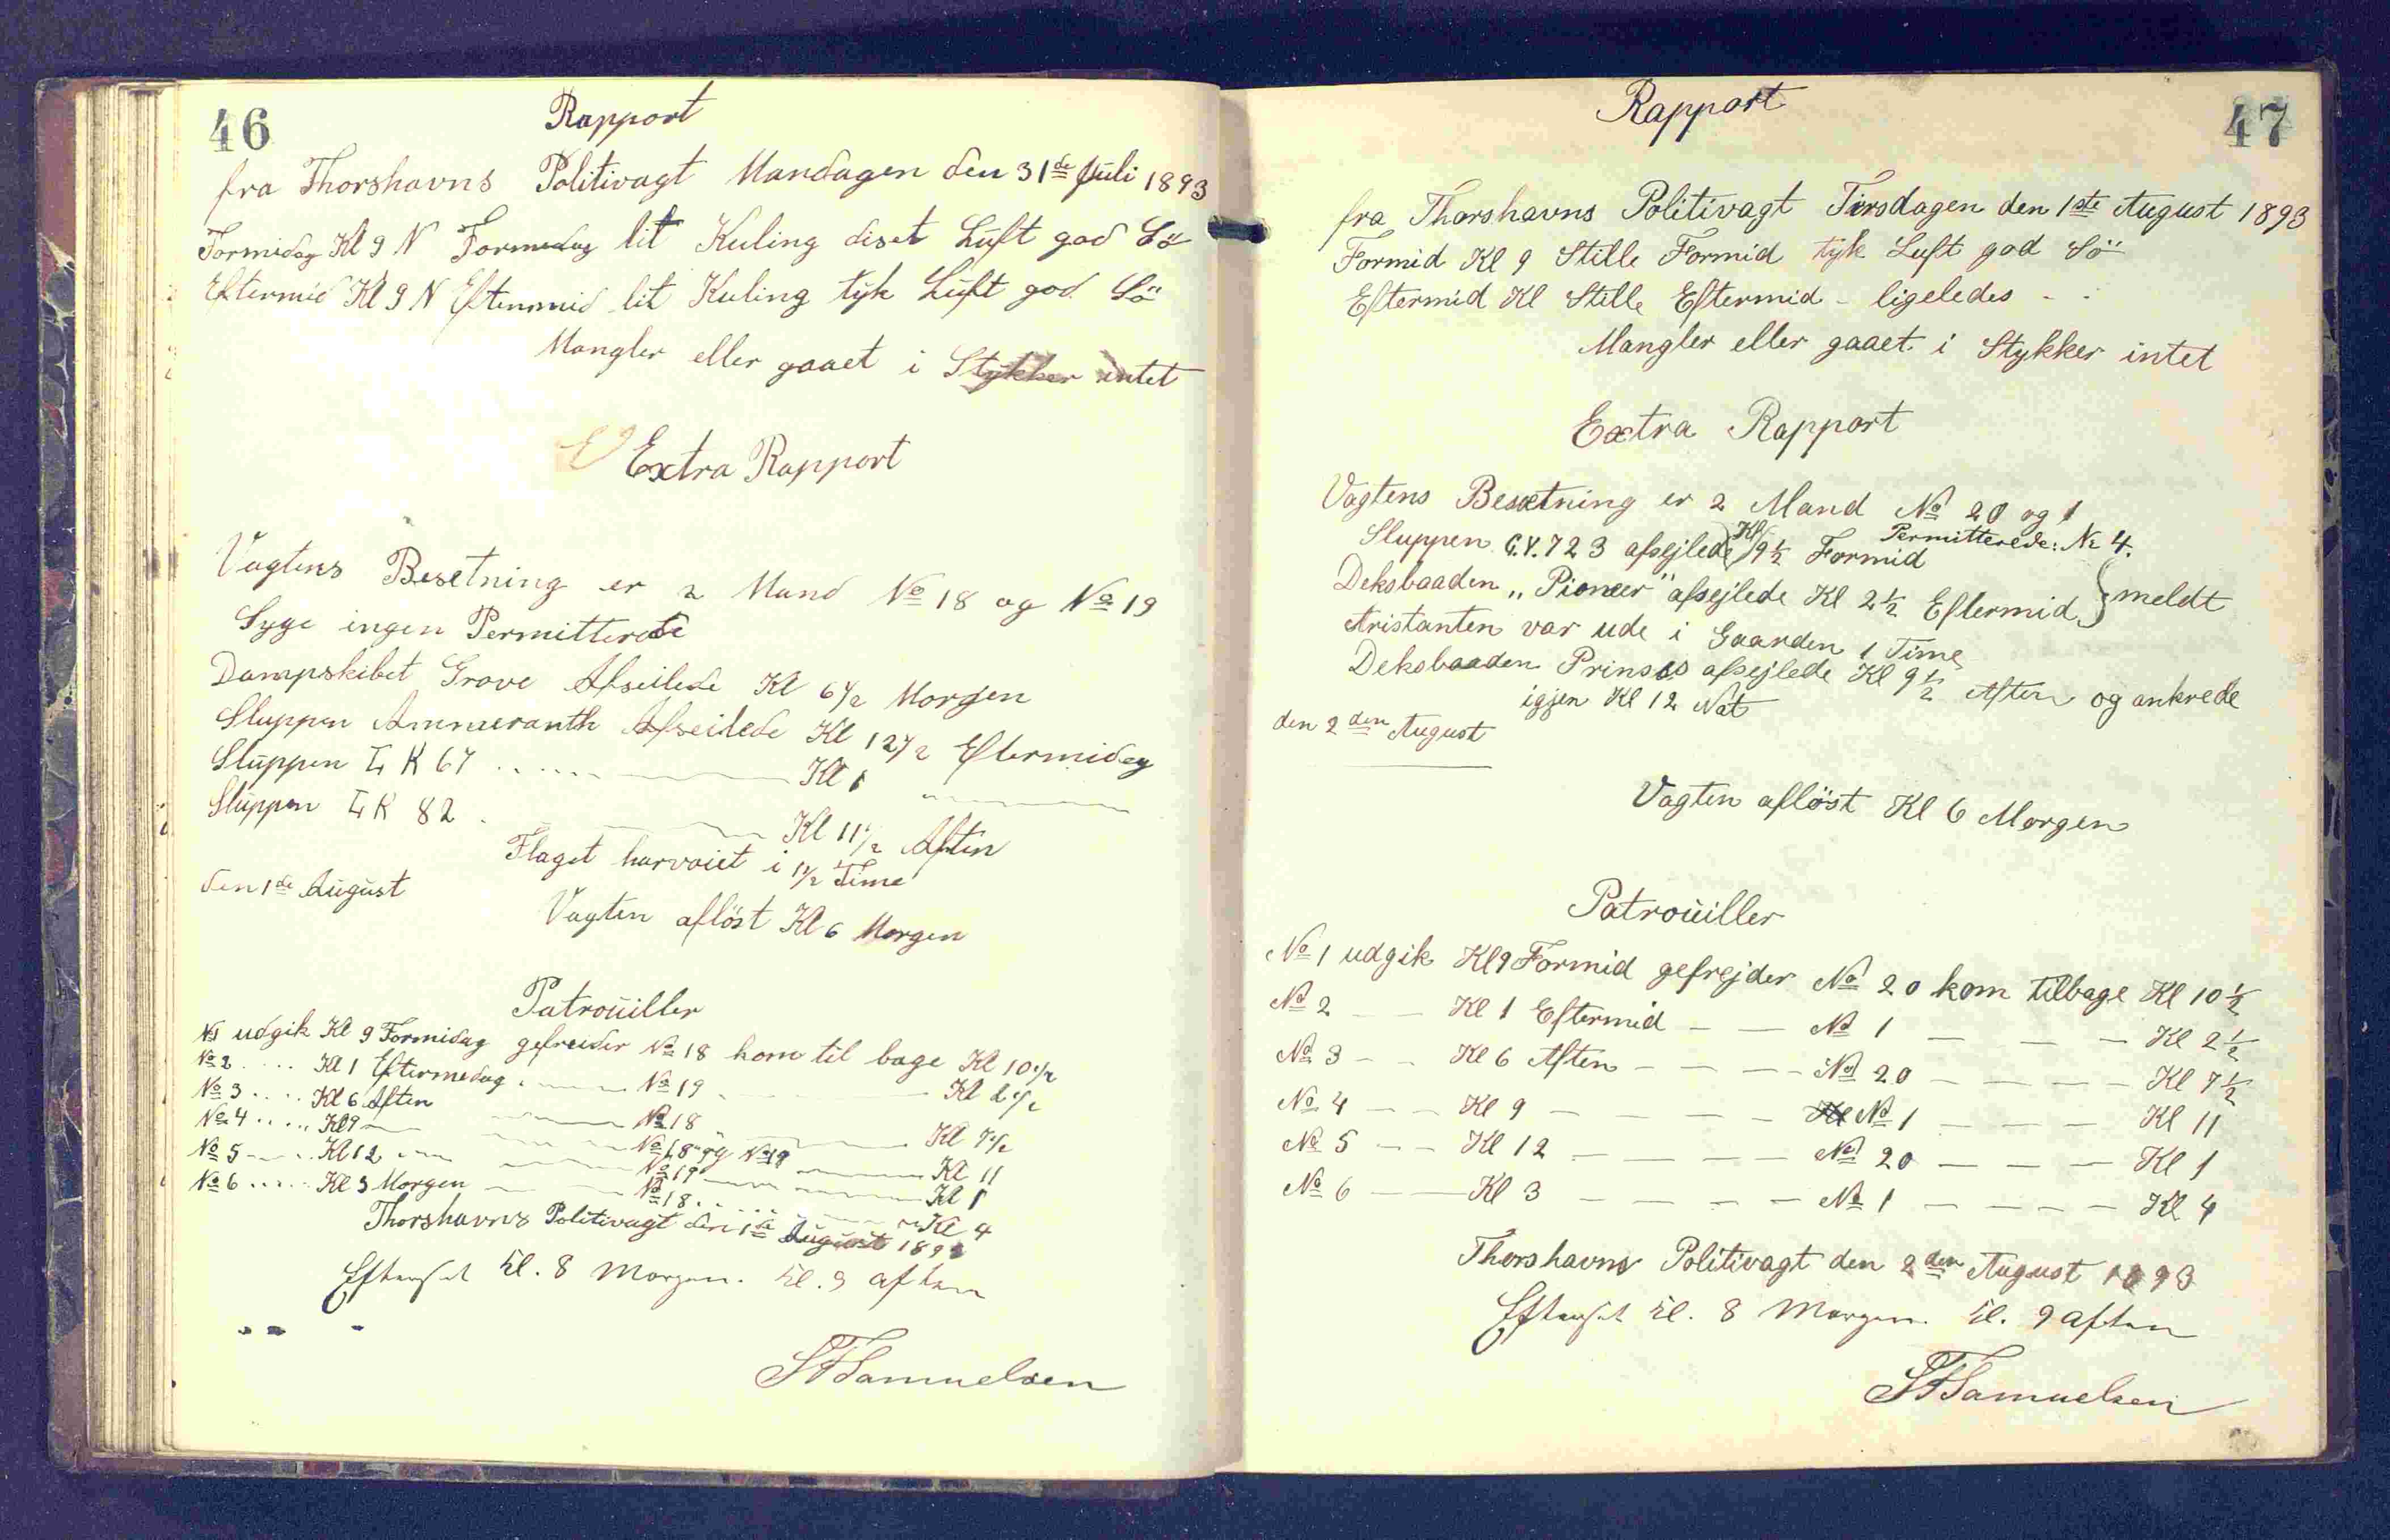 46
Rapport
fra Thorshavns Politivagt Mandagen den 31de Juli 1893
Formidag Kl 9 N Formedag lit Kuling diset Luft god Sö
Eftermid Kl 9 N Eftermid lit Kuling tyk Luft god Sö
Mangler eller gaaet i Stykker intet
Extra Rapport
Vagtens Besetning er 2 Mand No 18 og No 19
Syge ingen Permitterede
Dampskibet Grove Afseilede Kl 6 1/2 Morgen
Sluppen Ammeranth Afseilede Kl 12 1/2 Eftermidag
Sluppen LK 67 ..... — Kl 1 —
Sluppen LK 82 . — Kl 11 1/2 Aften
Flaget harvaiet i 1 1/2 Time
den 1de August
Vagten aflöst Kl 6 Morgen
Patrouiller
No 1 udgik Kl 9 Formidag gefreider No 18 kom til bage Kl 10 1/2
No 2 .... Kl 1 Eftermedag . — No 19 . — Kl 2 1/2
No 3 .... Kl 6 Aften — No 18 — Kl 7 1/2
No 4 ..... Kl 9 — No 18 og No 19 — Kl 11
No 5 — .. Kl 12 — No 19 — Kl 1
No 6 ..... Kl 3 Morgen — No 18 .... — Kl 4
Thorshavns Politivagt den 1de August 1893
Efterset kl. 8 Morgen. kl. 9 aften
SFSamuelsen
47
Rapport
fra Thorshavns Politivagt Tirsdagen den 1ste August 1893
Formid Kl 9 Stille Formid tyk Luft god Sö
Eftermid Kl Stille Eftermid - ligeledes - -
Mangler eller gaaet i Stykker intet
Extra Rapport
Vagtens Besætning er 2 Mand No 20 og 1
Permitterede: No 4.
Sluppen G.Y. 723 afsejlede Kl 9 1/2 Formid
Deksbaaden „Pioneer" afsejlede Kl 2 1/2 Eftermid } meldt
Aristanten var ude i Gaarden 1 Time
Deksbaaden Prinses afsejlede Kl 9 1/2 Aften og ankrede
igjen Kl 12 Nat
den 2den August
Vagten aflöst Kl 6 Morgen
Patrouiller
No 1 udgik Kl 9 Formid gefrejder No 20 kom tilbage Kl 10 1/2
No 2 — — Kl 1 Eftermid — — No 1 — — — Kl 2 1/2
No 3 - - Kl 6 Aften - - - - No 20 - - - - Kl 7 1/2
No 4 — — Kl 9 — — — — Kl No 1 — — — Kl 11
No 5 — — Kl 12 — — — — No 20 — — — Kl 1
No 6 — — Kl 3 — — — — No 1 — — — — Kl 4
Thorshavns Politivagt den 2den August 1893
Efterset kl. 8 Morgen. kl. 9 aften
SFSamuelsen